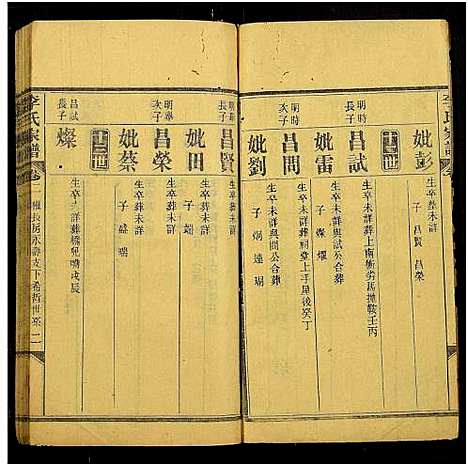 妣彭 生卒葬未詳
子 昌賢 昌榮
十二世
明時長子 昌試 生卒未詳葬上南衝劣馬拋鞍壬丙
妣雷 生卒未詳與試公合葬
子 燦 燿
明時次子 昌問 生卒未詳葬祠堂上手屋後癸丁
妣劉 生卒未詳與問公合葬
子 炳 達 瑚
明舉長子 昌賢 生卒葬未詳
妣田 生卒葬未詳
明舉次子 昌榮 生卒葬未詳
妣蔡 生卒葬未詳
子 盛 瑞
十三世
昌試長子 燦 生卒未詳葬橋兒嘴戌辰
李氏家譜 卷二 雅長房永壽支下希哲世系 二